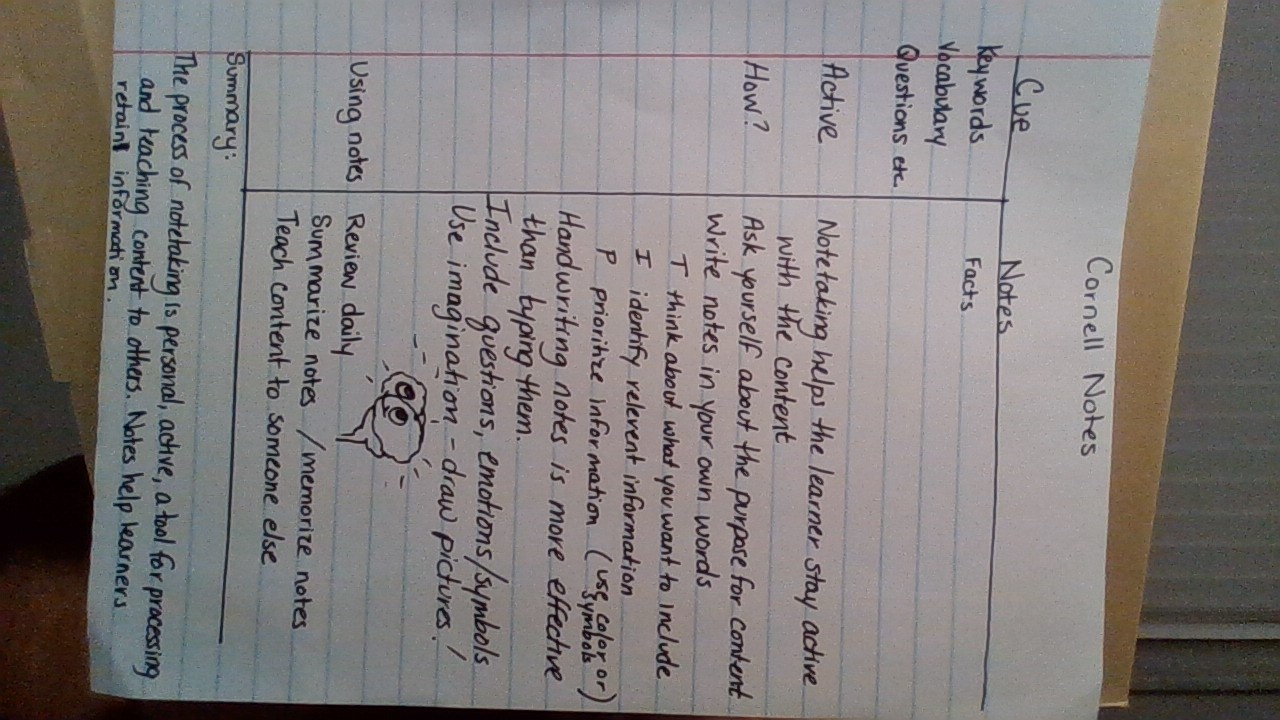 Cornell Notes
Cue
Notes
Keywords
Facts
Vocabulary
Questions etc.
Active
Notetaking helps the learner stay active
with the content
How?
Ask yourself about the purpose for content
Write notes in your own words
T think about what you want to include
I identify relevent information
P prioritize information (use color or
symbols)
Handwriting notes is more effective
than typing them.
Include questions, emotions/symbols
Use imagination - draw pictures!
Using notes
Review daily
Summarize notes /memorize notes
Teach content to someone else
Summary:
The process of notetaking is personal, active, a tool for processing
and teaching content to others. Notes help learners
retain information.